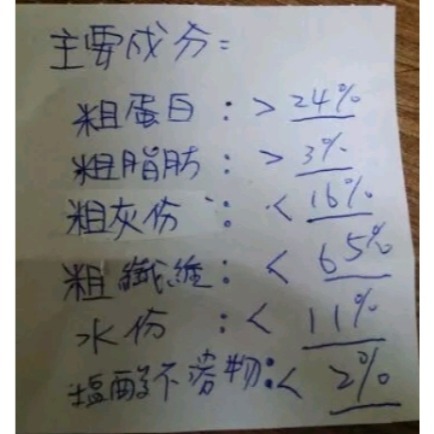 主要成分=
粗蛋白:>24%
粗脂肪:>3%
粗灰份:<16%
粗纖維:<65%
水份:<11%
塩酸不溶物:<2%